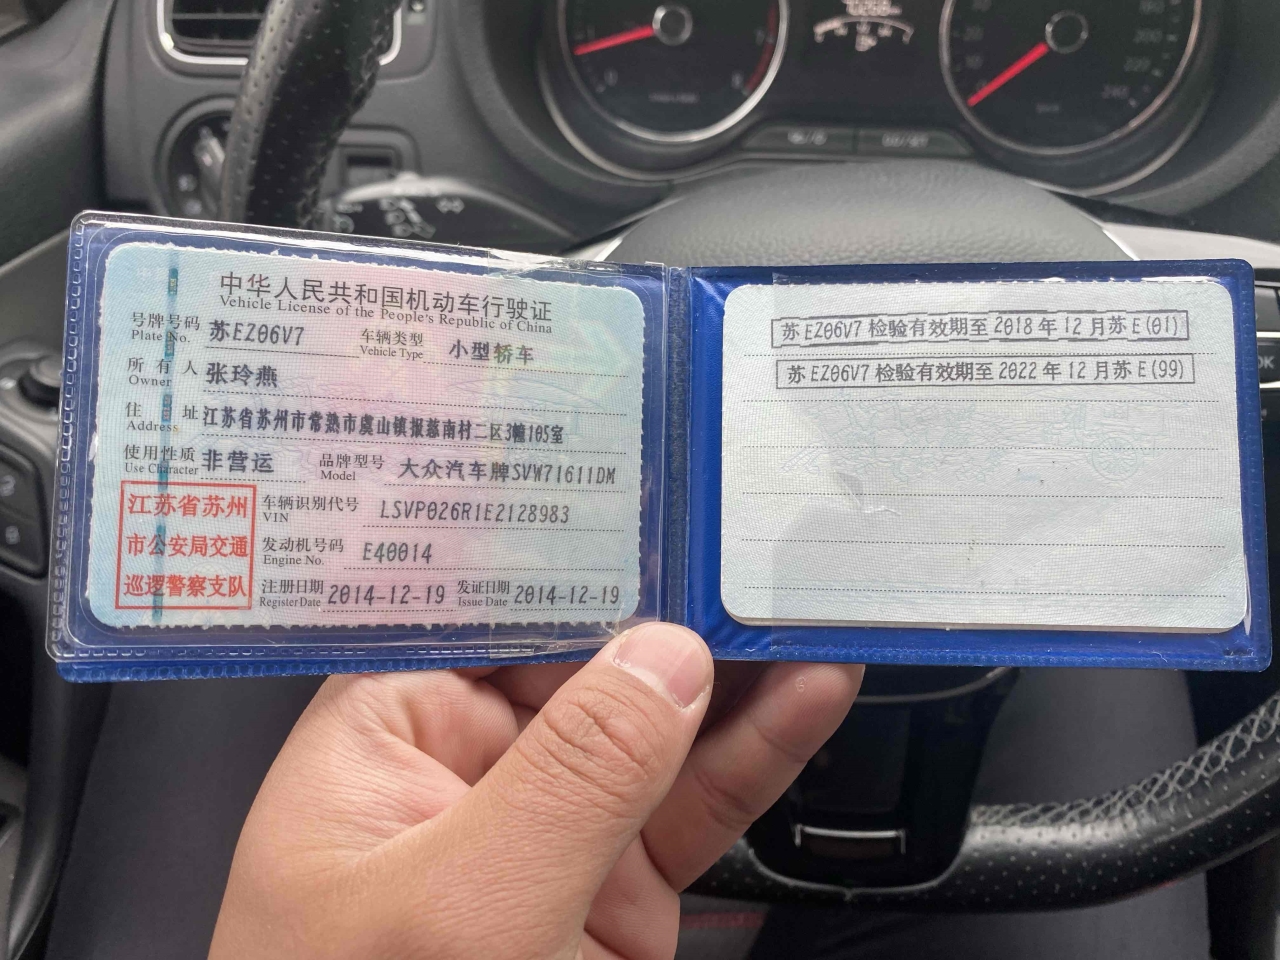 中华人民共和国机动车行驶证
Vehicle License of the People's Republic of China
号牌号码 苏EZ06V7 车辆类型 小型轿车
Plate No. Vehicle Type
所有人 张玲燕
Owner
住址 江苏省苏州市常熟市虞山镇报慈南村二区3幢105室
Address
使用性质 非营运 品牌型号 大众汽车牌SVW71611DM
Use Character Model
江苏省苏州
市公安局交通
巡逻警察支队
车辆识别代号 LSVP026R1E2128983
VIN
发动机号码 E40014
Engine No.
注册日期 2014-12-19 发证日期 2014-12-19
Register Date Issue Date
苏EZ06V7 检验有效期至 2018年12月苏E(01)
苏EZ06V7 检验有效期至 2022年12月苏E(99)
OK